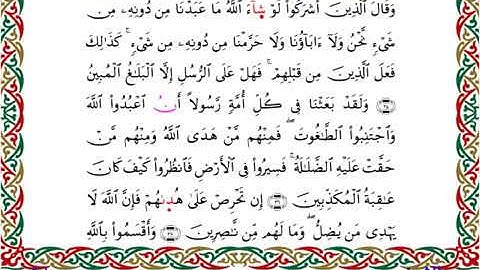 وَقَالَ ٱلَّذِينَ أَشۡرَكُواْ لَوۡ شَآءَ ٱللَّهُ مَا عَبَدۡنَا مِن دُونِهِۦ مِن
شَيۡءٖ نَّحۡنُ وَلَآ ءَابَآؤُنَا وَلَا حَرَّمۡنَا مِن دُونِهِۦ مِن شَيۡءٖۚ كَذَٰلِكَ
فَعَلَ ٱلَّذِينَ مِن قَبۡلِهِمۡۚ فَهَلۡ عَلَى ٱلرُّسُلِ إِلَّا ٱلۡبَلَٰغُ ٱلۡمُبِينُ
٣٥ وَلَقَدۡ بَعَثۡنَا فِي كُلِّ أُمَّةٖ رَّسُولًا أَنُ ٱعۡبُدُواْ ٱللَّهَ
وَٱجۡتَنِبُواْ ٱلطَّٰغُوتَۖ فَمِنۡهُم مَّنۡ هَدَى ٱللَّهُ وَمِنۡهُم مَّنۡ
حَقَّتۡ عَلَيۡهِ ٱلضَّلَٰلَةُۚ فَسِيرُواْ فِي ٱلۡأَرۡضِ فَٱنظُرُواْ كَيۡفَ كَانَ
عَٰقِبَةُ ٱلۡمُكَذِّبِينَ ٣٦ إِن تَحۡرِصۡ عَلَىٰ هُدَىٰهُمۡ فَإِنَّ ٱللَّهَ لَا
يَهۡدِي مَن يُضِلُّۖ وَمَا لَهُم مِّن نَّٰصِرِينَ ٣٧ وَأَقۡسَمُواْ بِٱللَّهِ